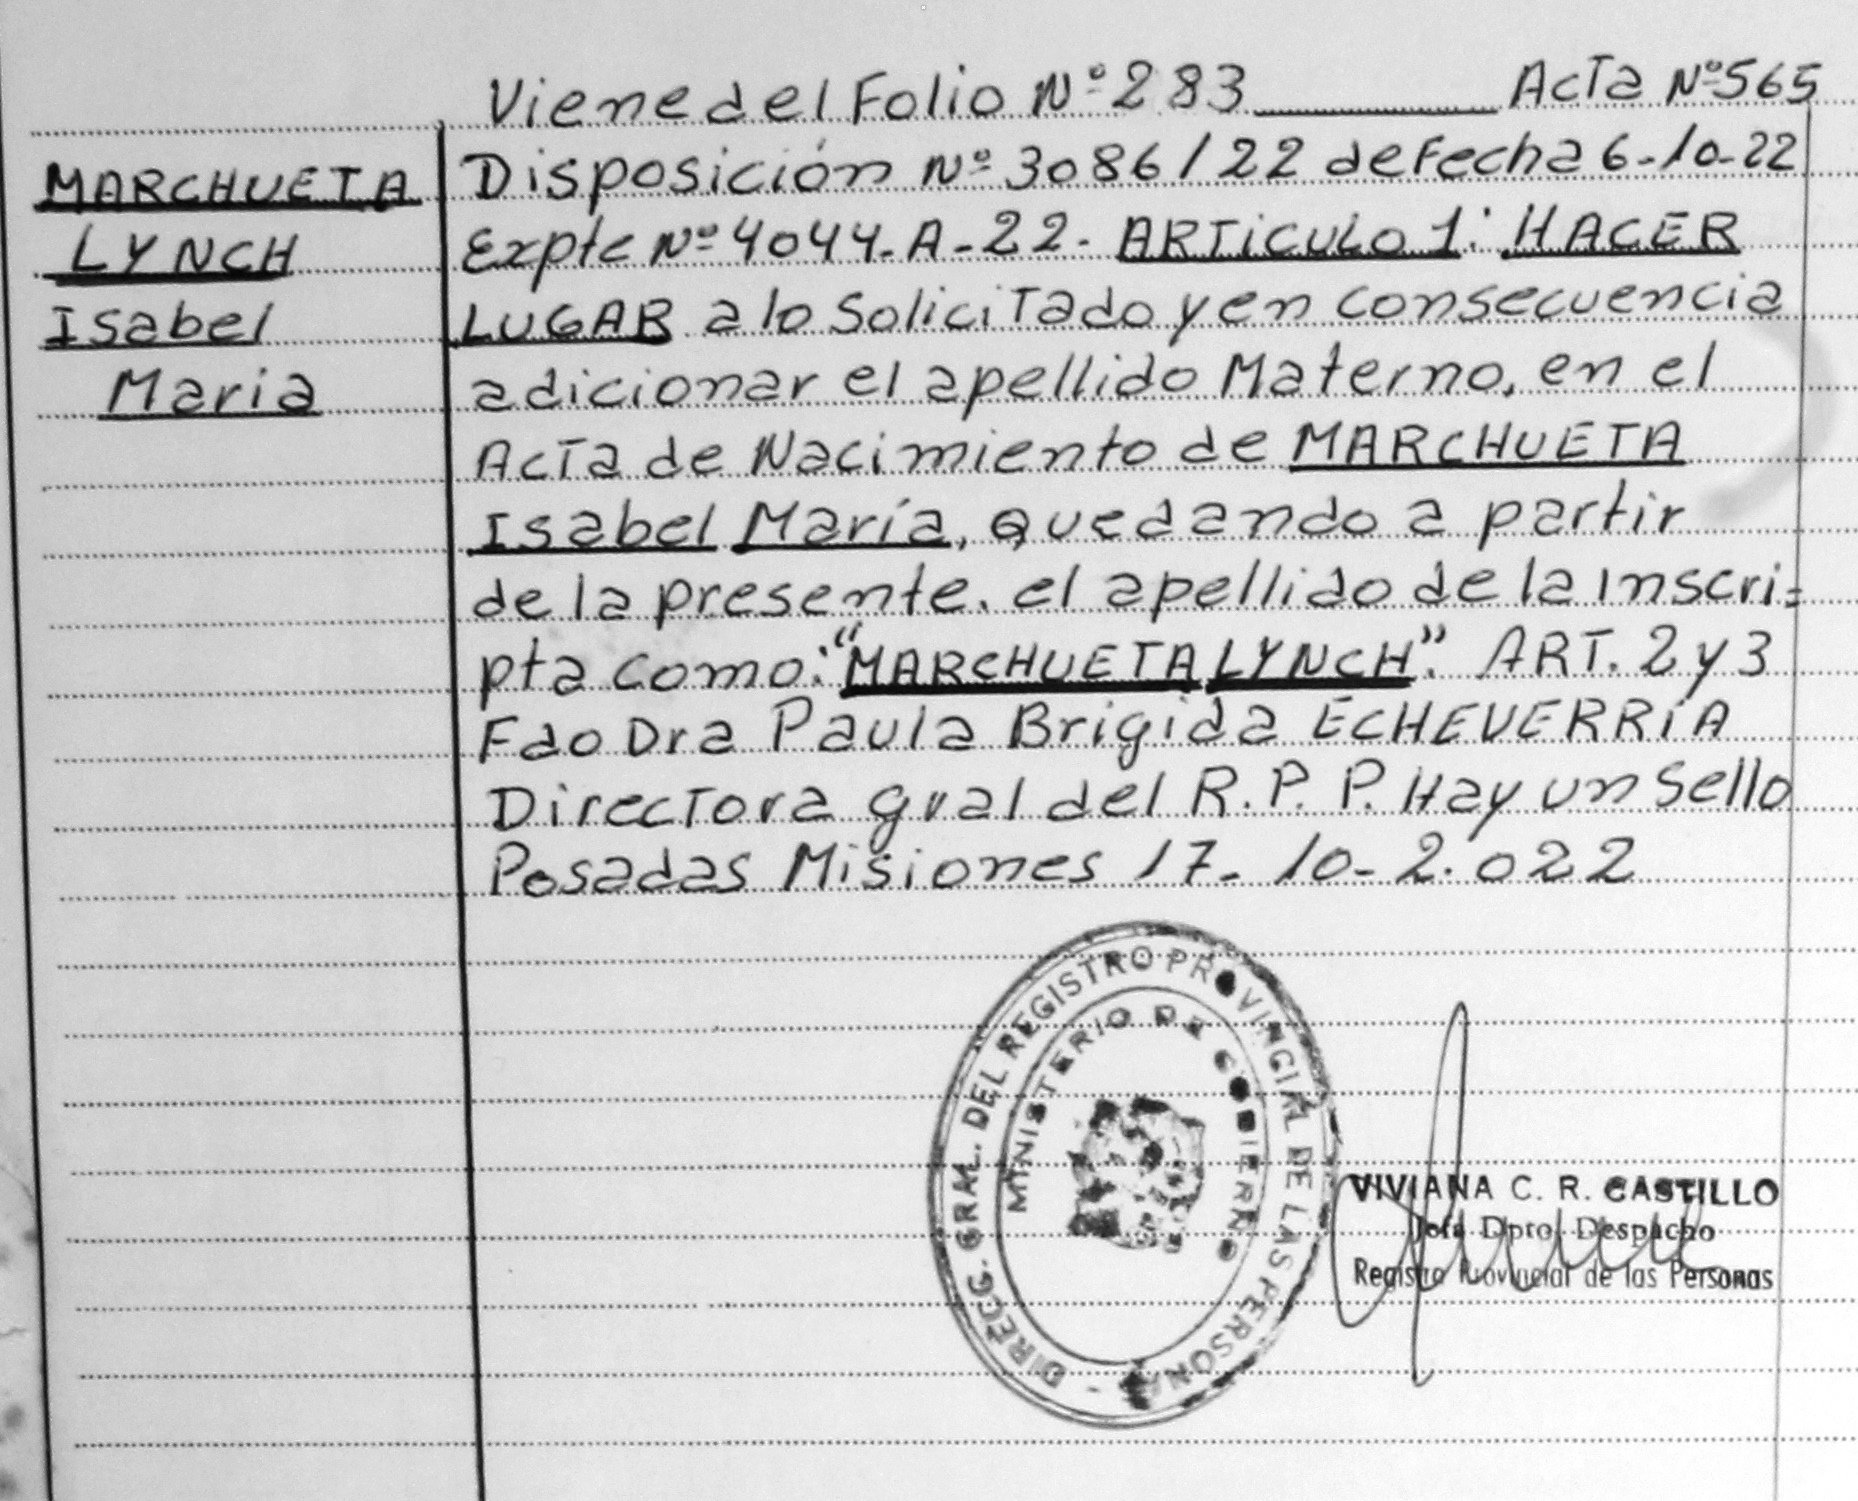 Viene del Folio Nº 283 Acta Nº 565
MARCHUETA
LYNCH
Isabel
Maria
Disposición Nº 3086/22 de Fecha 6-10-22
Expte Nº 4044-A-22- ARTICULO 1: HACER
LUGAR a lo Solicitado y en consecuencia
adicionar el apellido Materno, en el
Acta de Nacimiento de MARCHUETA
Isabel María, quedando a partir
de la presente. el apellido de la inscri-
pta como: "MARCHUETA LYNCH". ART. 2 y 3
Fdo Dra Paula Brigida ECHEVERRÍA
Directora gral del R.P.P. Hay un Sello
Posadas Misiones 17-10-2.022
DIRECC. GRAL. DEL REGISTRO PROVINCIAL DE LAS PERSONAS
MINISTERIO DE GOBIERNO
VIVIANA C. R. CASTILLO
Jefa Dpto. Despacho
Registro Provincial de las Personas